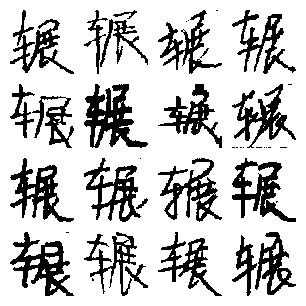 辗辗辗辗
辗辗辗辗
辗辗辗辗
辗辗辗辗